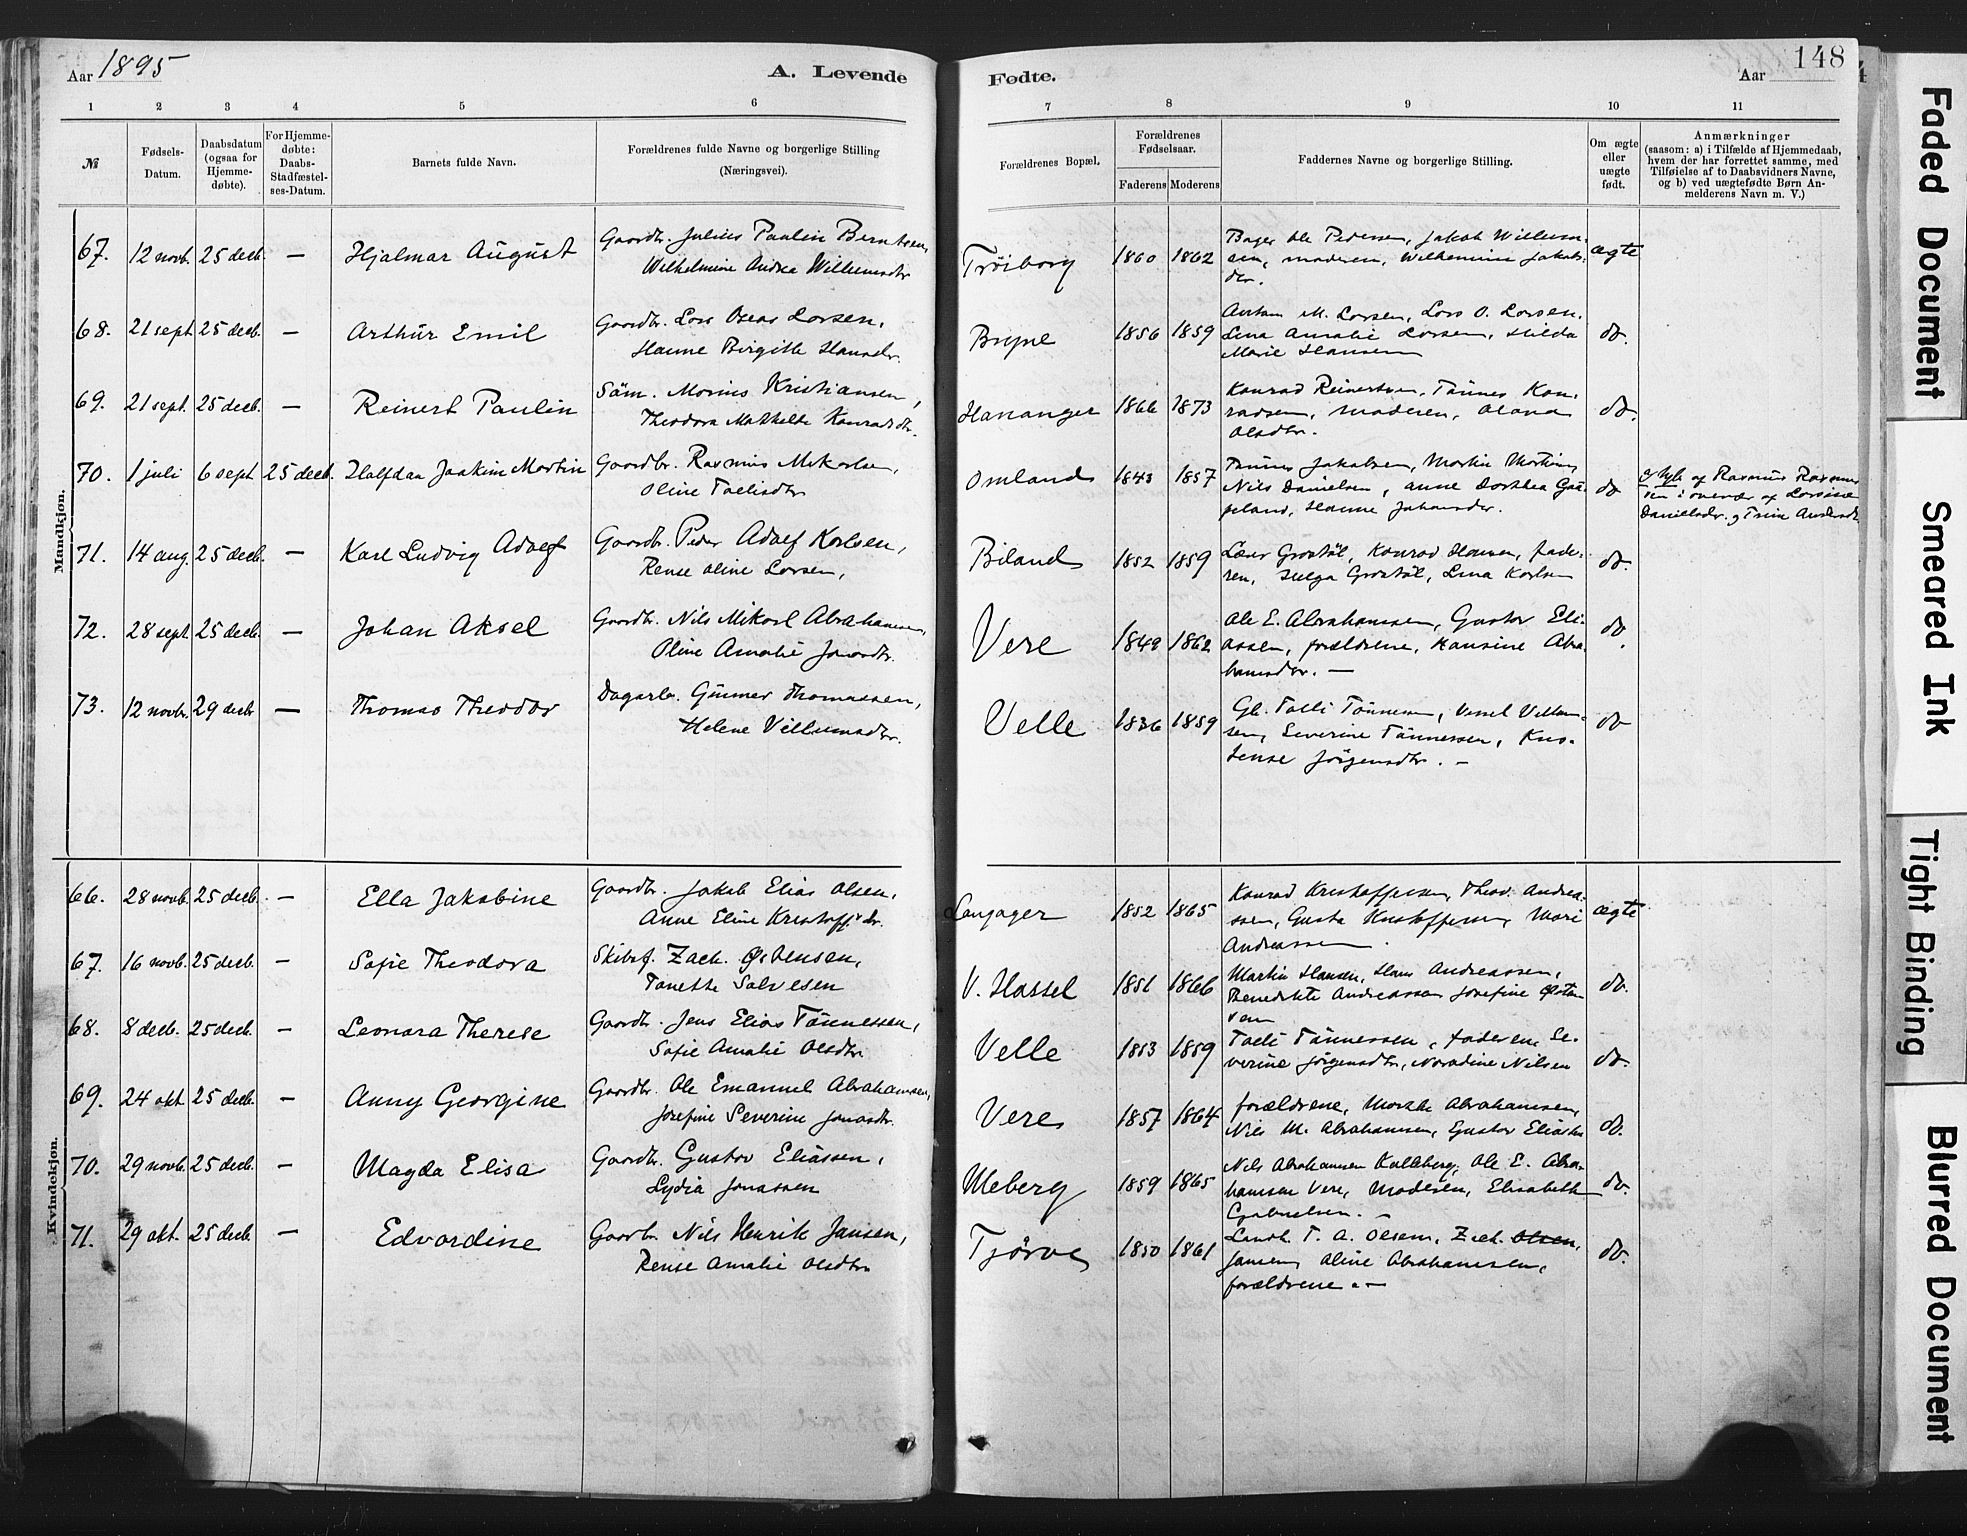 Aar 1895
A. Levende
Fødte.
Aar
148
1 2 3 4 5 6 7 8 9 10 11
№
Fødsels-
Datum.
Daabsdatum
(ogsaa for
Hjemme-
døbte).
For Hjemme-
døbte:
Daabs-
Stadfæstel-
ses-Datum.
Barnets fulde Navn.
Forældrenes fulde Navne og borgerlige Stilling
(Næringsvei).
Forældrenes Bopæl.
Forældrenes
Fødselsaar.
Faderens Moderens
Faddernes Navne og borgerlige Stilling.
Om ægte
eller
uægte
født.
Anmærkninger
(saasom: a) i Tilfælde af Hjemmedaab,
hvem der har forrettet samme, med
Tilføielse af to Daabsvidners Navne,
og b) ved uægtefødte Børn An-
melderens Navn m. V.)
Mandkjøn.
67. 12 novb. 25 decb. — Hjalmar August
Gaardbr. Julius Paulin Berntsen,
Wilhelmine Andrea Willumsdtr
Trøiborg 1860 1862
Bager Ole Pedersen, Jakob Willum-
sen, moderen, Wilhelmine Jakobs-
dtr.
ægte
68. 21 sept 25 decb. — Arthur Emil
Gaardbr. Lars Oscar Larsen,
Hanne Birgitte Hansdtr.
Bryne 1856 1859
M. Larsen, Lars O. Larsen,
Lena Amalie Larsen, Hilda
Marie Hansen
do.
69. 21 sept. 25 decb. — Reinert Paulin
Søm. Marius Kristiansen,
Theodora Mathilde Konradsdtr.
Hananger 1866 1873
Konrad Reinertsen, Tønnes Kon-
radsen, moderen,
Olsdtr.
do.
70. 1 juli 6 sept 25 decb. Halfdan Joakim Martin
Gaardbr. Rasmus Mikalsen,
Oline Tollisdtr
Omland 1843 1857
Tønnes Jakobsen, Martin
Nils Danielsen, Anne Dorthea Gaa-
seland, Hanne Johansdtr.
do
af Rasmus Rasmus-
sen i af
Danielsdtr. og Trine
71. 14 aug. 25 decb. — Karl Ludvig Adolf
Gaardbr. Peder Adolf Karlsen,
Rense Oline Larsen,
Biland 1852 1859
Konrad Hansen, fade-
ren, Helga Lena Karlsen
do.
72. 28 sept. 25 decb. — Johan Aksel
Gaardbr. Nils Mikael Abrahamsen,
Oline Amalie Jonasdtr.
Vere 1849 1862
Ole E. Abrahamsen, Gustav Eli-
assen, forældrene, Hansine Abra-
hamsdtr. —
do.
73. 12 novbr. 29 decbr — Thomas Theodor
Dagarb. Gunner Thomassen,
Helene Villumsdtr.
Velle 1836 1859
Gb. Tolli Tønnesen, Villum-
sen, Severine Tønnessen,
Jørgensdtr. —
do
Kvindekjøn.
66. 28 novb. 25 decb. — Ella Jakobine
Gaardbr. Jakob Elias Olsen,
Anne Eline Kristoff.dr.
Langager 1852 1865
Konrad Kristoffersen, Theod. Andrea-
ssen, Gusta Kristoffersen, Mari
Andreassen.
ægte
67. 16 novb. 25 decb. — Sofie Theodora
Skibsf. Zach. Østensen,
Tanette Salvesen
V. Hassel 1851 1866
Martin Hansen, Hans Andreassen,
Benedikte Andreassen Josefine Østen-
sen
do.
68. 8 decb. 25 decb. — Leonora Therese
Gaardbr. Jens Elias Tønnessen,
Sofie Amalie Olsdtr
Velle 1853 1859
Tolli Tønnessen, faderen, Se-
verine Jørgensdtr, Nordine Nilsen
do.
69. 24 okt. 25 decb. — Anny Georgine
Gaardbr. Ole Emanuel Abrahamsen,
Josefine Severine Jonasdtr.
Vere 1857 1864
forældrene, Marthe Abrahamsen,
Nils M. Abrahamsen, Gustav Eliassen
do.
70. 29 novb. 25 decb. — Magda Elisa
Gaardbr. Gustav Eliassen,
Lydia Jonassen
Meberg 1859 1865
Nils Abrahamsen Kalleberg, Ole E. Abra-
hamsen Vere, Moderen, Elisabeth
Gabrielsen. —
do.
71. 29 okt. 25 decb. — Edvardine
Gaarbr. Nils Henrik Jansen,
Rense Amalie Olsdtr
Tjørve 1850 1861
Landh. T. A. Olsen, Zach. Olsen,
Jansen, Aline Abrahamsen,
forældrene. —
do.
Faded Document
Smeared Ink
Tight Binding
Blurred Document